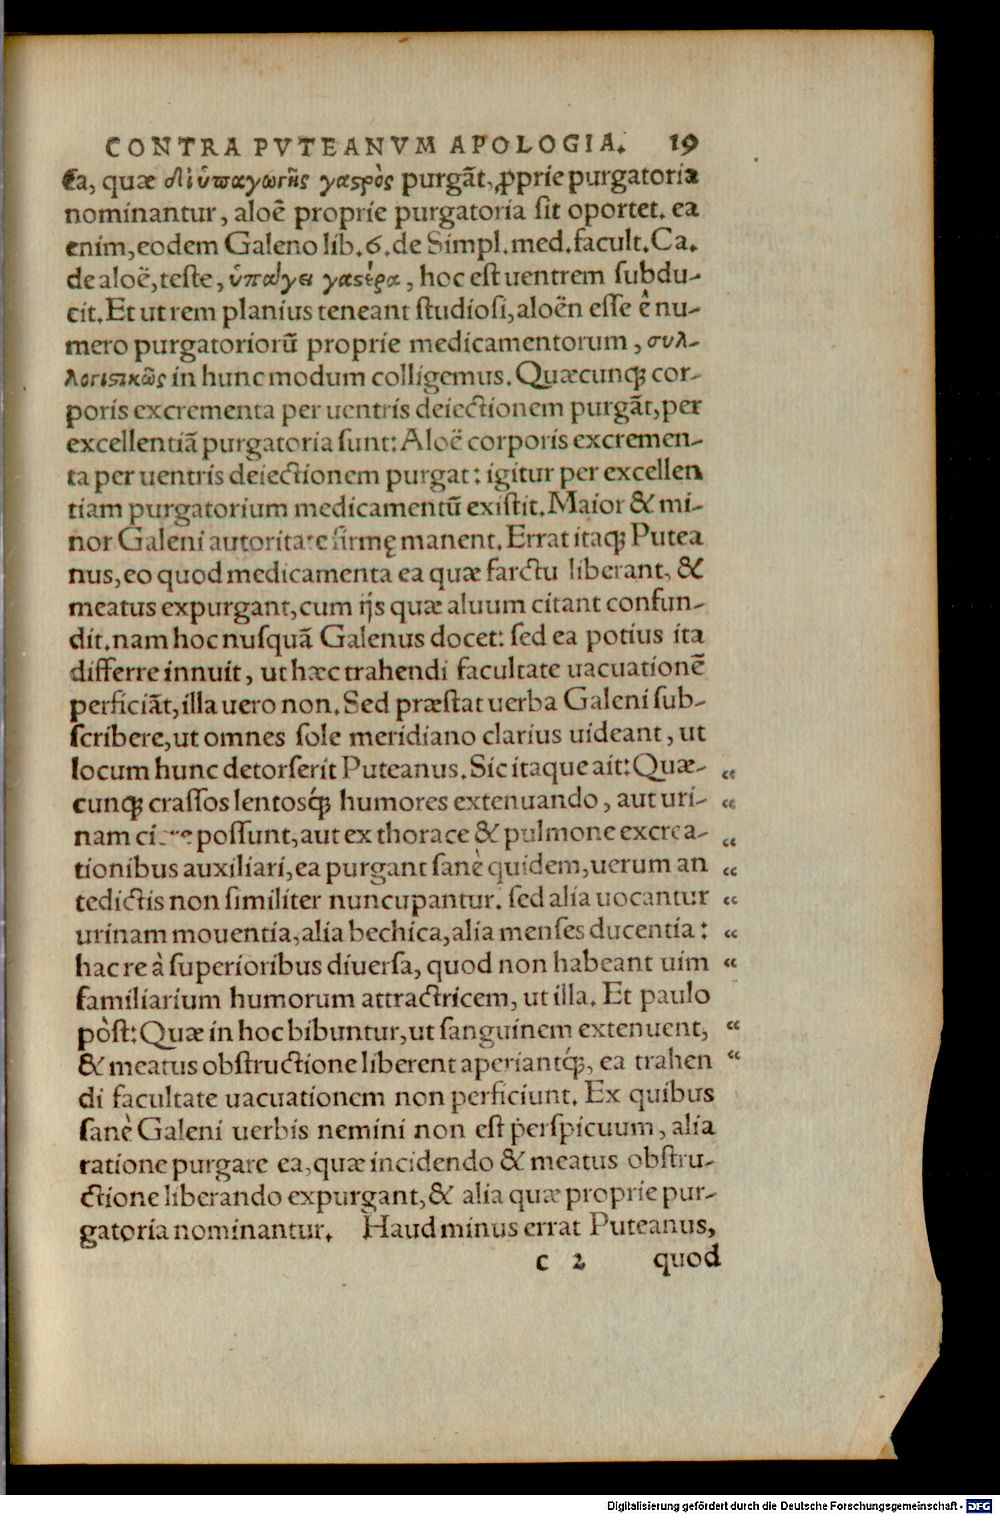 CONTRA PVTEANVM APOLOGIA. 19
Ea, quæ δι' ὑπαγωγῆς γαςρὸς purgāt, ꝓprie purgatoria
nominantur, aloē proprie purgatoria sit oportet. ea
enim, eodem Galeno lib. 6. de Simpl. med. facult. Ca.
de aloë, teste, ὑπάγει γαςέρα, hoc est uentrem subdu-
cit. Et ut rem planius teneant studiosi, aloën esse è nu-
mero purgatoriorū proprie medicamentorum, συλ-
λογιςικῶς in hunc modum colligemus. Quæcunqꝫ cor-
poris excrementa per uentris deiectionem purgāt, per
excellentiā purgatoria sunt: Aloë corporis excremen-
ta per uentris deiectionem purgat: igitur per excellen
tiam purgatorium medicamentū existit. Maior & mi-
nor Galeni autoritate firmę manent. Errat itaqꝫ Putea
nus, eo quod medicamenta ea quæ farctu liberant, &
meatus expurgant, cum ijs quæ aluum citant confun-
dit. nam hoc nusquā Galenus docet: sed ea potius ita
differre innuit, ut hæc trahendi facultate uacuationē
perficiāt, illa uero non. Sed præstat uerba Galeni sub-
scribere, ut omnes sole meridiano clarius uideant, ut
locum hunc detorserit Puteanus. Sic itaque ait: Quæ- “
cunqꝫ crassos lentosqꝫ́ humores extenuando, aut uri- “
nam possunt, aut ex thorace & pulmone excrea- “
tionibus auxiliari, ea purgant sanè quidem, uerum an “
tedictis non similiter nuncupantur. sed alia uocantur “
urinam mouentia, alia bechica, alia menses ducentia: “
hac re à superioribus diuersa, quod non habeant uim “
familiarium humorum attractricem, ut illa. Et paulo
pòst: Quæ in hoc bibuntur, ut sanguinem extenuent, “
& meatus obstructione liberent aperiantqꝫ́, ea trahen “
di facultate uacuationem non perficiunt. Ex quibus
sanè Galeni uerbis nemini non est perspicuum, alia
ratione purgare ea, quæ incidendo & meatus obstru-
ctione liberando expurgant, & alia quæ proprie pur-
gatoria nominantur. Haud minus errat Puteanus,
c 2 quod
Digitalisierung gefördert durch die Deutsche Forschungsgemeinschaft - DFG